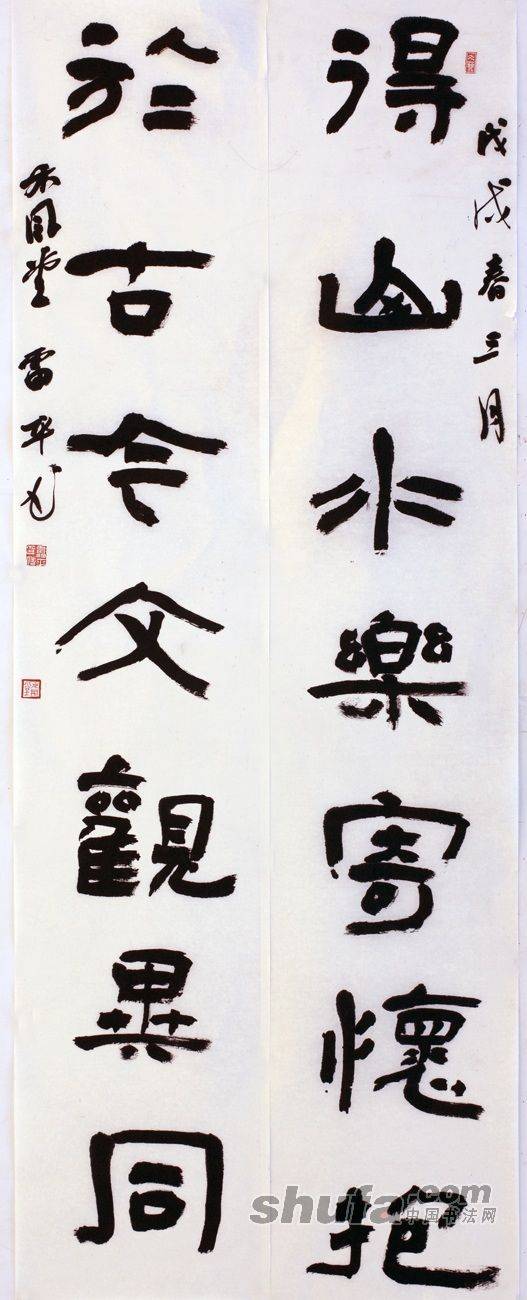 得山水樂寄懷抱
於古今文觀異同
戊戌春三月
大風堂 雷平
shufa.com
中国书法网